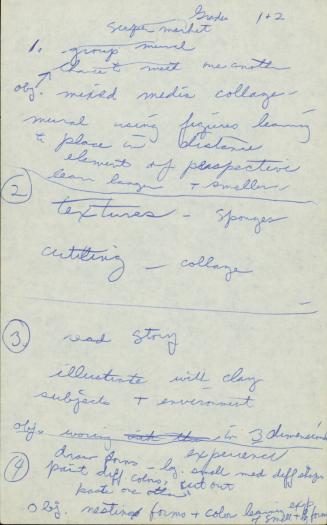 Grades 1+2
super market
1. group mural
chance to meet one another
obj. mixed media collage -
mural using figures learning
to place in distance
element of perspective
learn larger + smaller
2 textures - sponges
cutting - collage
3 read story
illustrate with clay
subjects + environment
obj. working in 3 dimensions
experience
4 draw forms - lg. small med diff shapes
paint diff colors, cut out
paste on others
Obj. nesting forms + color learning exp
of small + lg forms